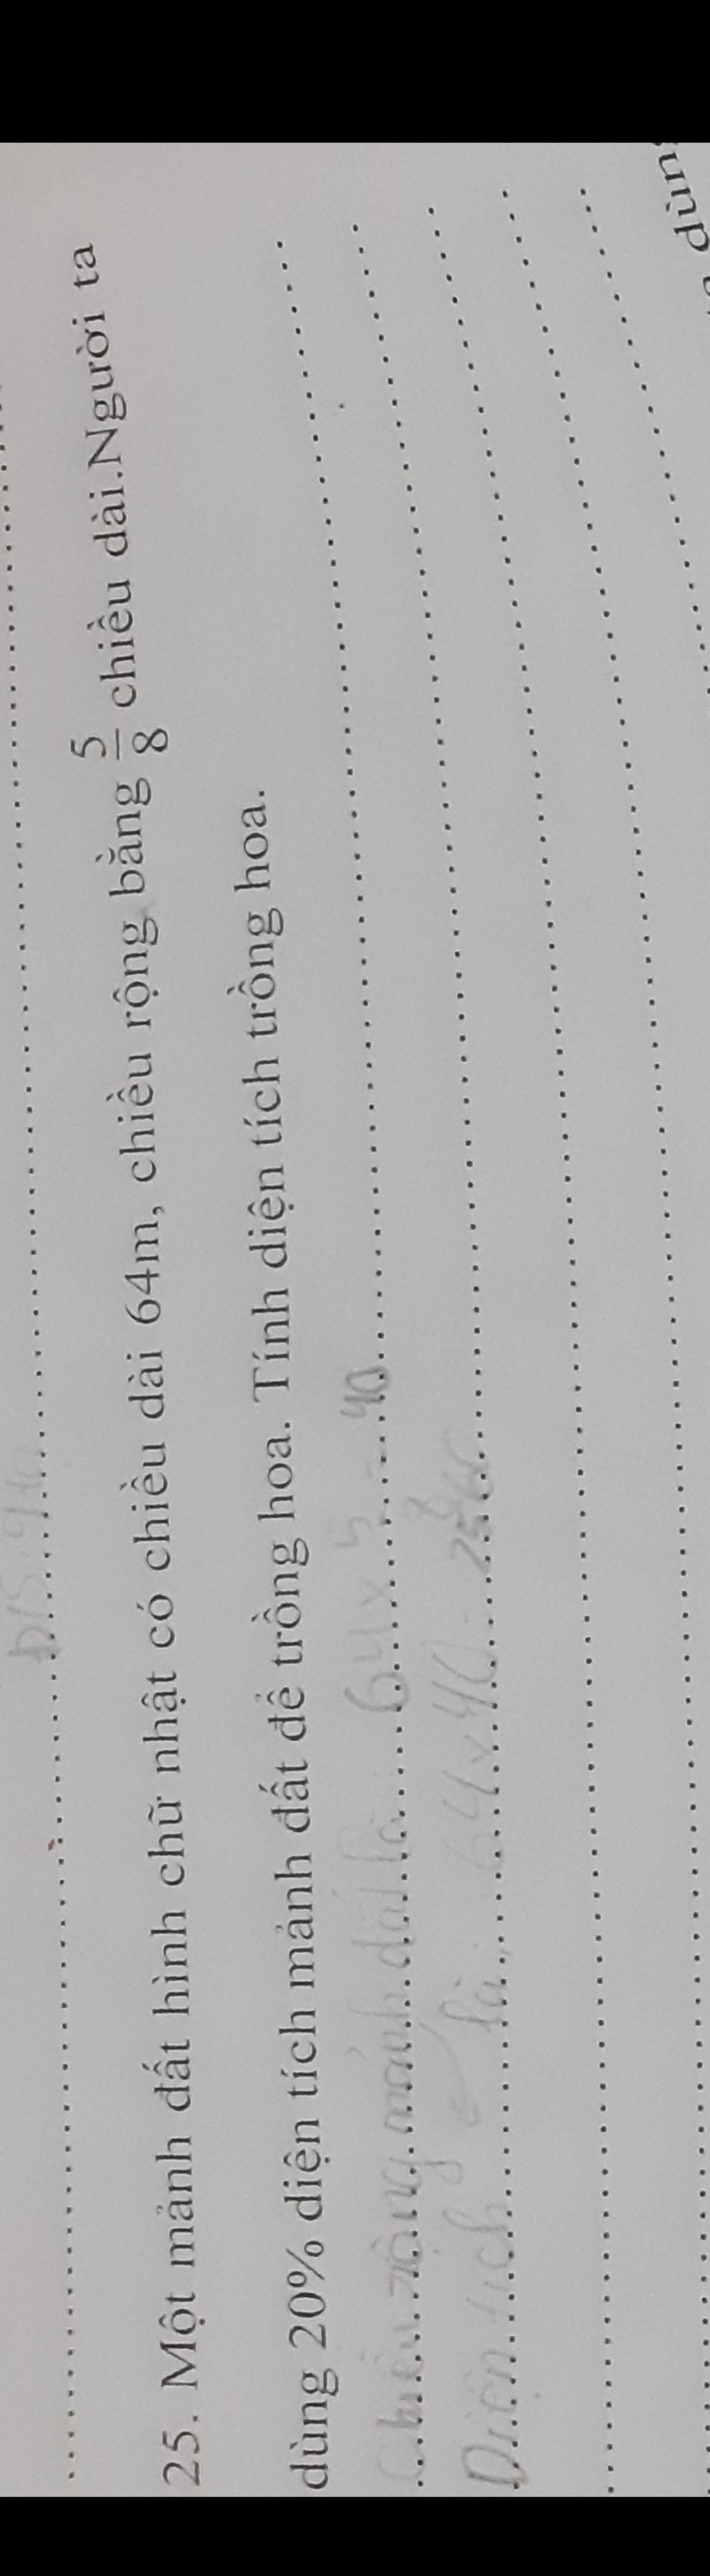 25. Một mảnh đất hình chữ nhật có chiều dài 64m, chiều rộng bằng 5/8 chiều dài.Người ta
dùng 20% diện tích mảnh đất để trồng hoa. Tính diện tích trồng hoa.
Chiều rộng mảnh đất là 64 x 5/8 = 40
Diện tích là: 64 x 40 = 2560
dùng